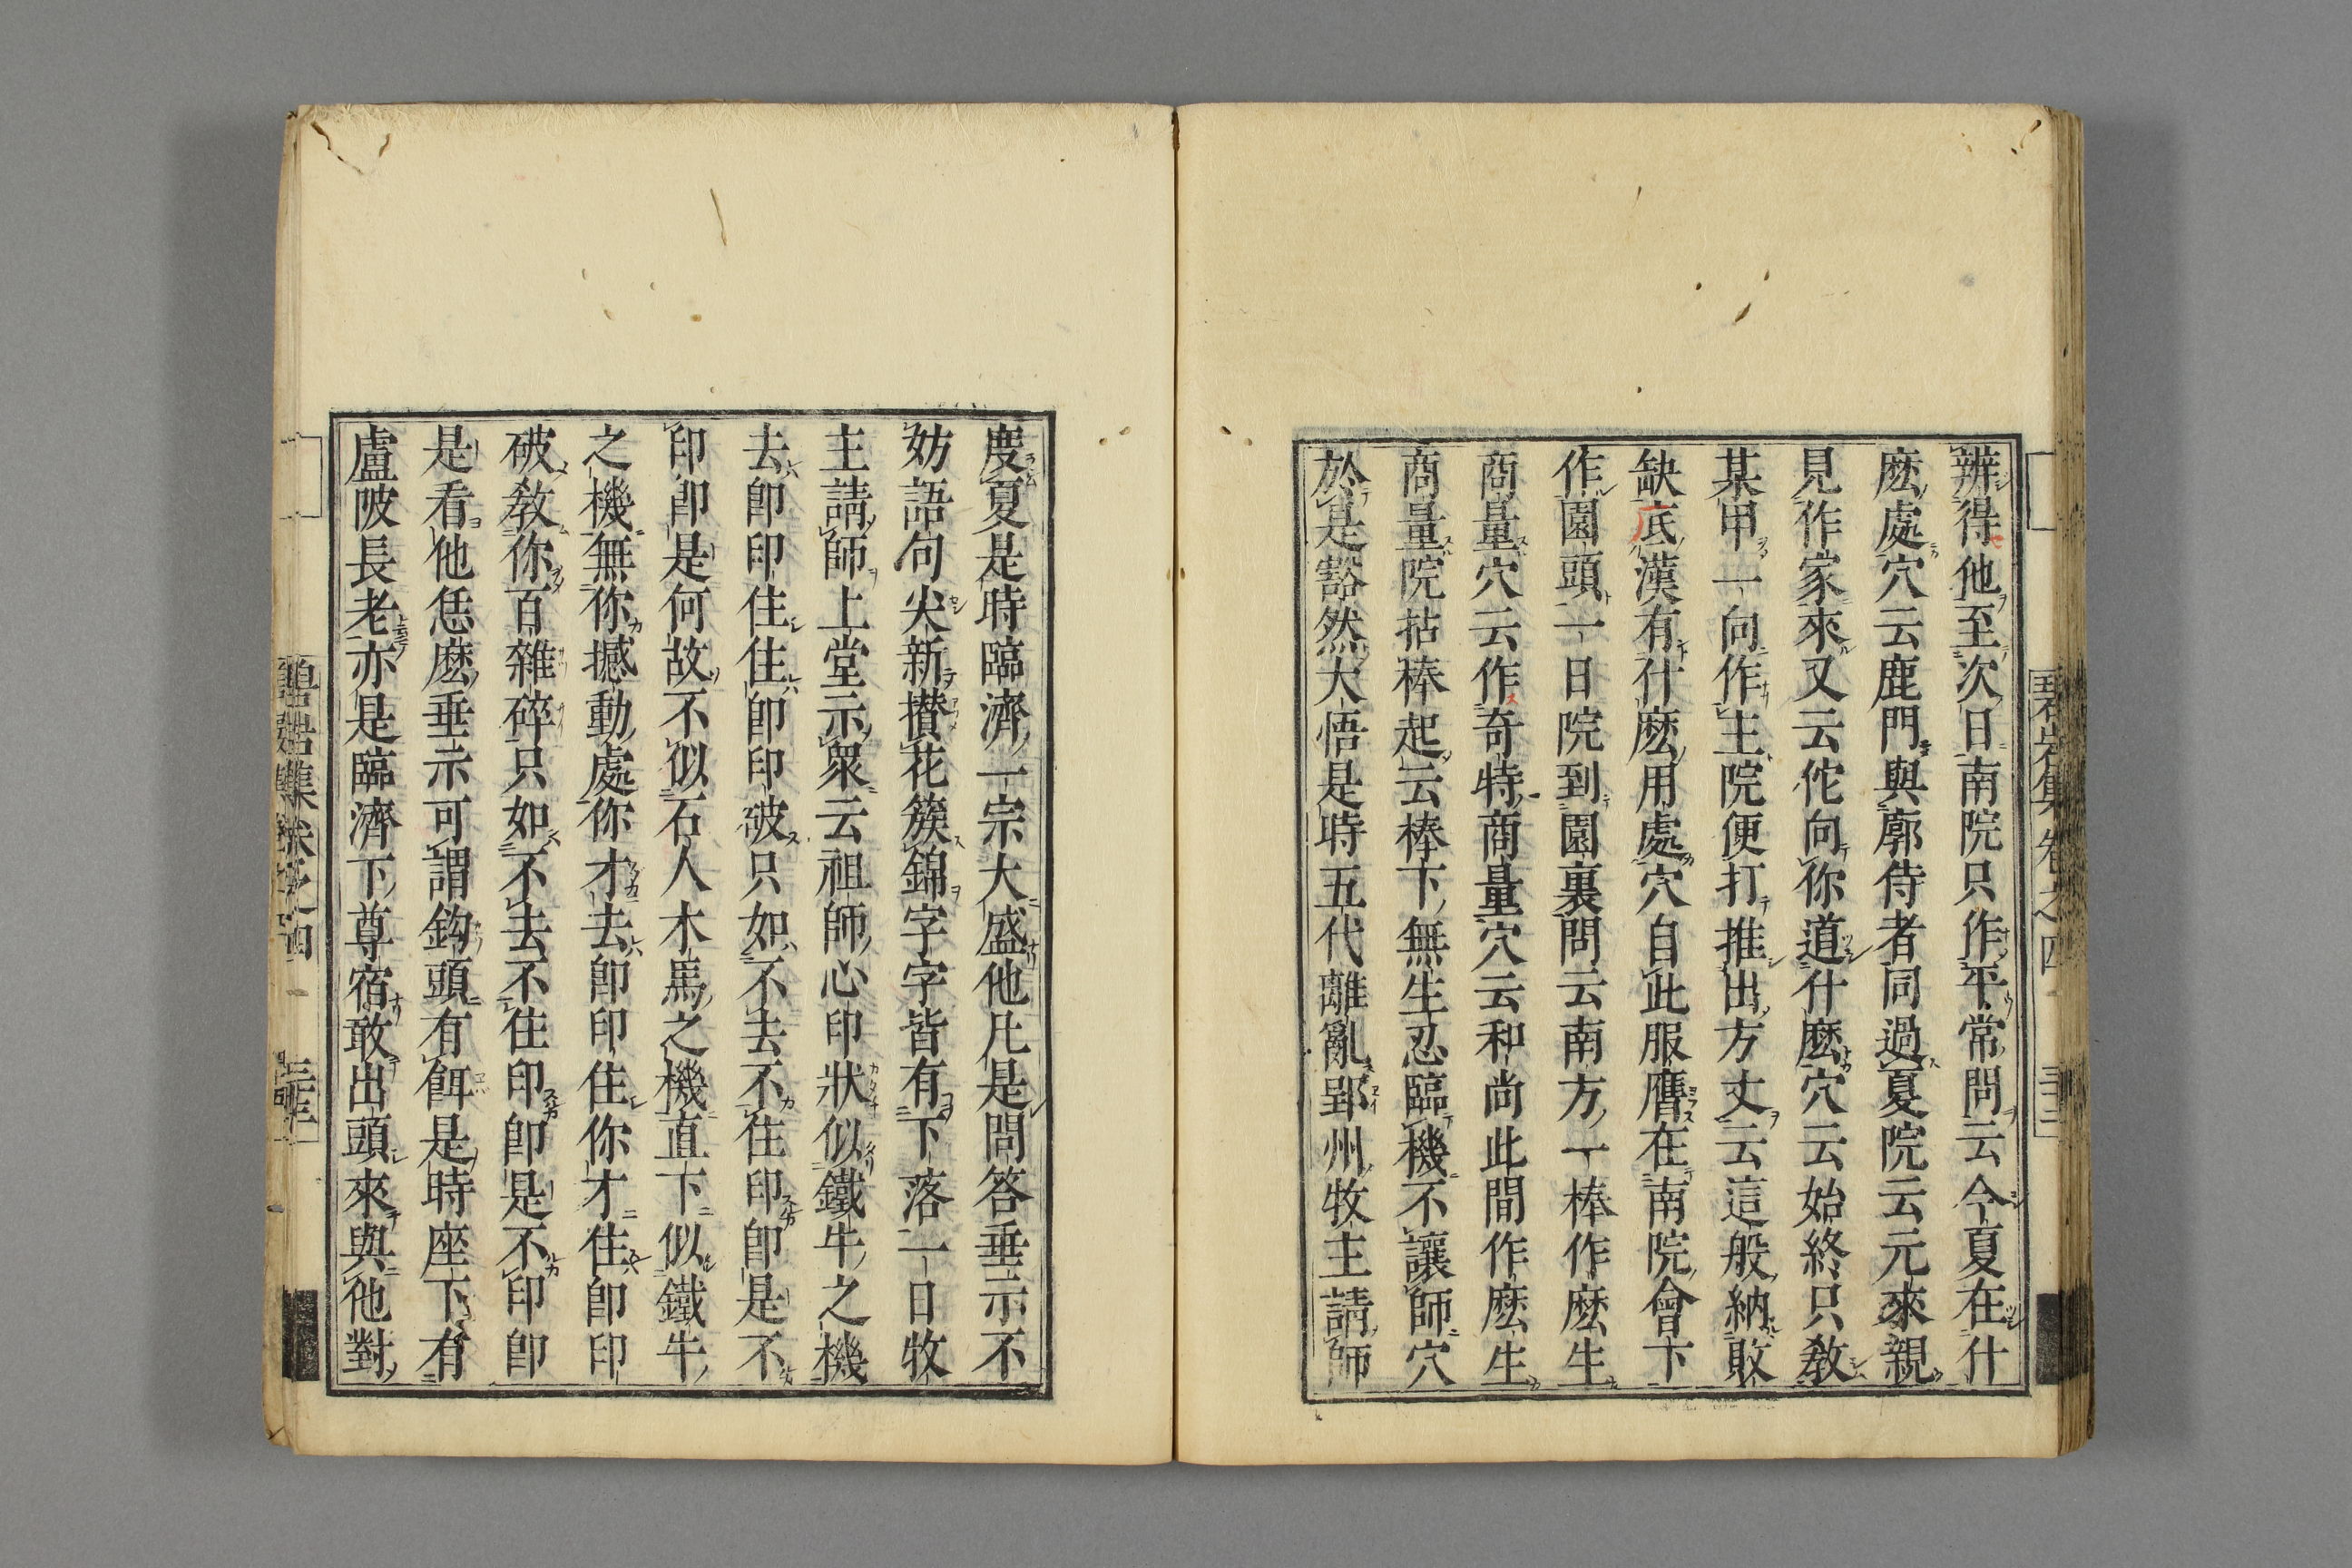 辨得他至次日南院只作平常問云今夏在什
麽處穴云鹿門與廓侍者同過夏院云元來親
見作家來又云佗向你道什麽穴云始終只敎
某甲一向作主院便打推出方丈云這般納敗
缺底漢有什麽用處穴自此服膺在南院會下
作園頭一日院到園裏問云南方一棒作麽生
商量穴云作奇特商量穴云和尚此間作麽生
商量院拈棒起云棒下無生忍臨機不讓師穴
於是豁然大悟是時五代離亂郢州牧主請師
度夏是時臨濟一宗大盛他凡是問答垂示不
妨語句尖新攅花簇錦字字皆有下落一日牧
主請師上堂示衆云祖師心印狀似鐵牛之機
去卽印住住卽印破只如不去不住印卽是不
印卽是何故不似石人木馬之機直下似鐵牛
之機無你撼動處你才去卽印住你才住卽印
破敎你百雜碎只如不去不住印卽是不印卽
是看他恁麽垂示可謂鈎頭有餌是時座下有
盧陂長老亦是臨濟下尊宿敢出頭來與他對
碧岩集卷之四